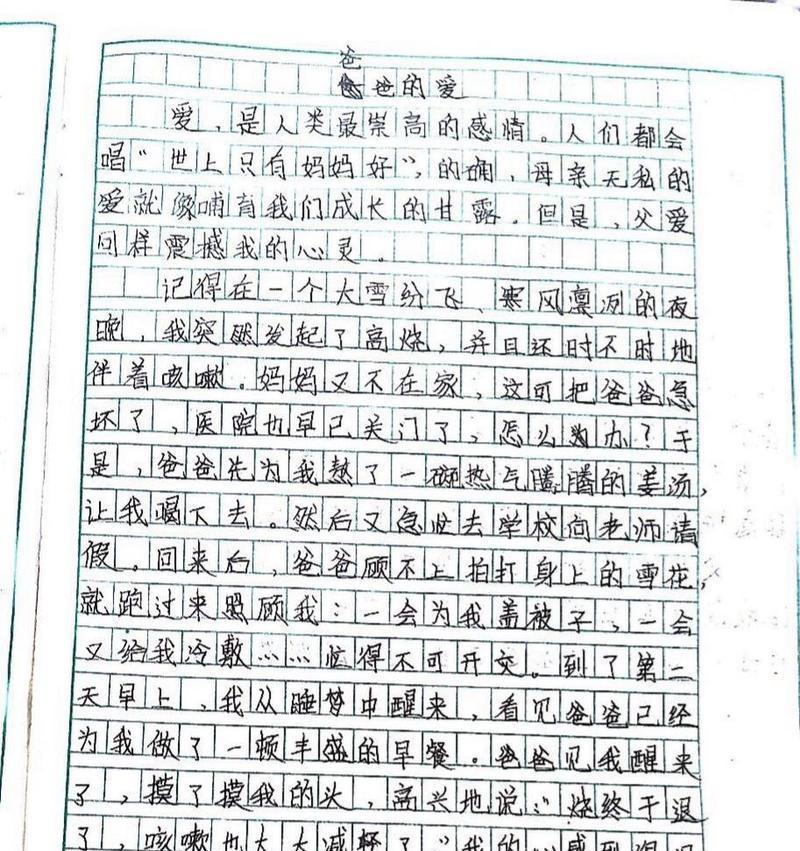 爸爸的爱
爱,是人类最崇高的感情。人们都会
唱“世上只有妈妈好”,的确,母亲无私的
爱就像哺育我们成长的甘露。但是,父爱
同样震撼我的心灵。
记得在一个大雪纷飞、寒风凛冽的夜
晚,我突然发起了高烧,并且还时不时地
伴着咳嗽。妈妈又不在家,这可把爸爸急
坏了,医院也早已关门了,怎么办?于
是,爸爸先为我熬了一碗热气腾腾的姜汤,
让我喝下去。然后又急忙去学校向老师请
假。回来后,爸爸顾不上拍打身上的雪花,
就跑过来照顾我:一会为我盖被子,一会
又给我冷敷……忙得不可开交。到了第二
天早上,我从睡梦中醒来,看见爸爸已经
为我做了一顿丰盛的早餐。爸爸见我醒来
了,摸了摸我的头,高兴地说:“烧终于退
了,咳嗽也大大减轻了”我的心感到